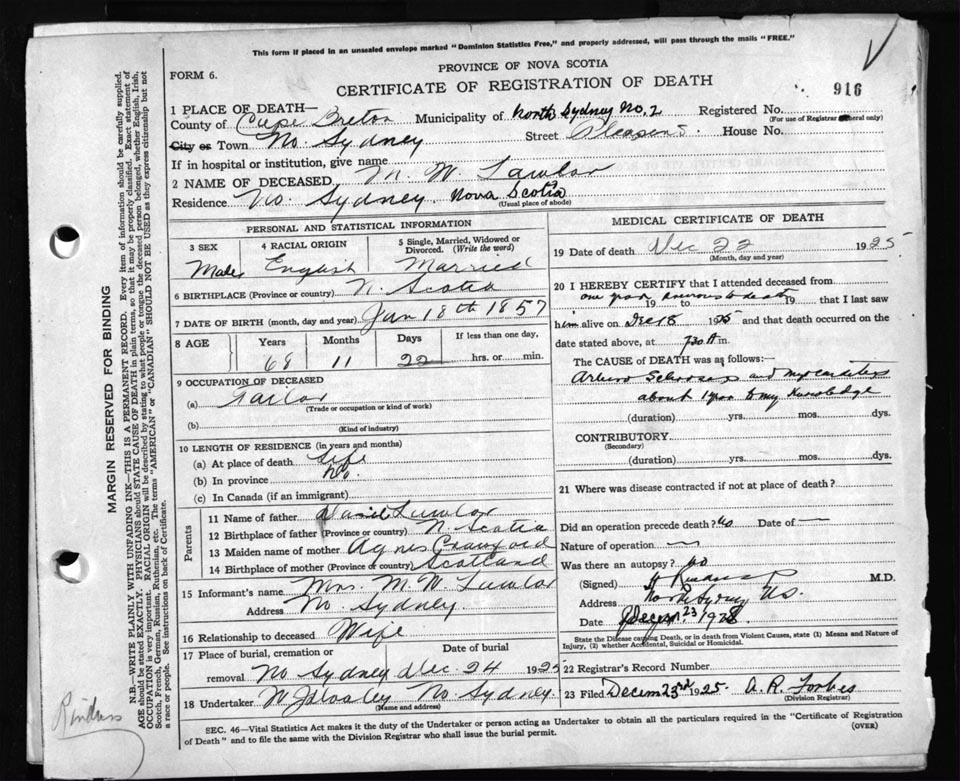 This form if placed in an unsealed envelope marked "Dominion Statistics Free," and properly addressed, will pass through the mails "FREE."
PROVINCE OF NOVA SCOTIA
FORM 6.
CERTIFICATE OF REGISTRATION OF DEATH
916
1 PLACE OF DEATH—
County of Cape Breton Municipality of North Sydney No. 2 Registered No.
(For use of Registrar General only)
City or Town No. Sydney Street House No.
If in hospital or institution, give name
2 NAME OF DECEASED M. W. Lawlor
Residence No. Sydney Nova Scotia
(Usual place of abode)
PERSONAL AND STATISTICAL INFORMATION
3 SEX 4 RACIAL ORIGIN 5 Single, Married, Widowed or Divorced. (Write the word)
Male English Married
6 BIRTHPLACE (Province or country) N. Scotia
7 DATE OF BIRTH (month, day and year) Jan 18th 1857
8 AGE Years Months Days If less than one day,
68 11 22 hrs. or min.
9 OCCUPATION OF DECEASED
(a) Tailor
(Trade or occupation or kind of work)
(b)
(Kind of industry)
10 LENGTH OF RESIDENCE (in years and months)
(a) At place of death Life
(b) In province
(c) In Canada (if an immigrant)
Parents
11 Name of father Lawlor
12 Birthplace of father (Province or country) N. Scotia
13 Maiden name of mother Agnes Crawford
14 Birthplace of mother (Province or country) Scotland
15 Informant's name Mrs. M. W. Lawlor
Address No. Sydney
16 Relationship to deceased Wife
17 Place of burial, cremation or removal Date of burial
No Sydney Dec. 24 1925
18 Undertaker No Sydney
(Name and address)
MEDICAL CERTIFICATE OF DEATH
19 Date of death Dec 22 1925
(Month, day and year)
20 I HEREBY CERTIFY that I attended deceased from
one year previous to death 19 to 19 that I last saw
him alive on Dec 18 1925 and that death occurred on
date stated above, at 730 A m.
The CAUSE of DEATH was as follows:—
Arterio Sclerosis and myocarditis
about 1 year to my knowledge
(duration) yrs. mos. dys.
CONTRIBUTORY
(Secondary)
(duration) yrs. mos. dys.
21 Where was disease contracted if not at place of death?
Did an operation precede death? No Date of —
Nature of operation —
Was there an autopsy? no
(Signed) M.D.
Address North Sydney N.S.
Date
State the Disease causing Death, or in death from Violent Causes, state (1) Means and Nature of Injury, (2) whether Accidental, Suicidal or Homicidal.
22 Registrar's Record Number
23 Filed Decem 23rd 1925. A. R. Forbes
(Division Registrar)
SEC. 46—Vital Statistics Act makes it the duty of the Undertaker or person acting as Undertaker to obtain all the particulars required in the "Certificate of Registration
of Death" and to file the same with the Division Registrar who shall issue the burial permit.
(OVER)
MARGIN RESERVED FOR BINDING
N.B.—WRITE PLAINLY WITH UNFADING INK—THIS IS A PERMANENT RECORD. Every item of information should be carefully supplied.
AGE should be stated EXACTLY. PHYSICIANS should STATE CAUSE OF DEATH in plain terms, so that it may be properly classified. Exact statement of
OCCUPATION is very important. RACIAL ORIGIN will be described by stating to what people or tongue the deceased person belonged, whether English, Irish,
Scotch, French, German, Russian, Ruthenian, etc. The terms "AMERICAN" or "CANADIAN" SHOULD NOT BE USED as they express citizenship but not
a race or people. See instructions on back of Certificate.